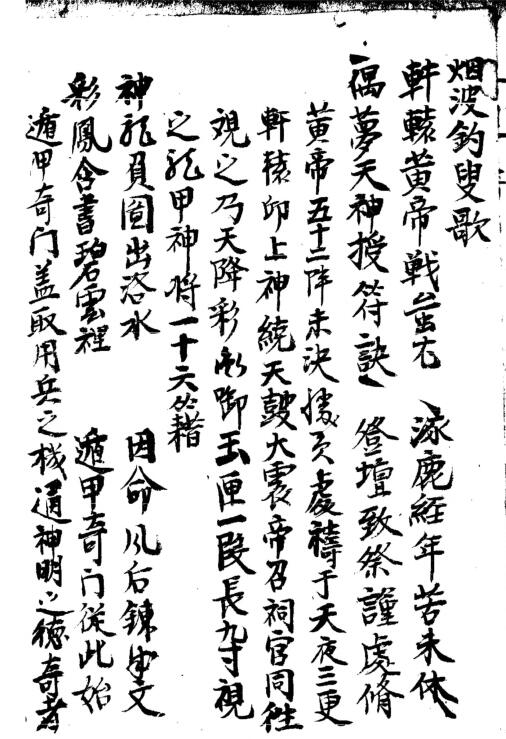 烟波釣叟歌
軒轅黃帝戰蚩尤 涿鹿經年苦未休
偶夢天神授符訣 登壇致祭謹處脩
黃帝五十二陣未決勝負虔禱于天夜三更
軒轅卬上神繞天鼓大震帝召祠官同徃
視之乃天降彩 御玉匣一段長九寸視
之龍甲神將一十六 藉
神龍負圖出洛水 因命风后鍊成文
彩鳳含書碧雲裡 遁甲奇门從此始
遁甲奇门盖取用兵之機通神明之德奇者